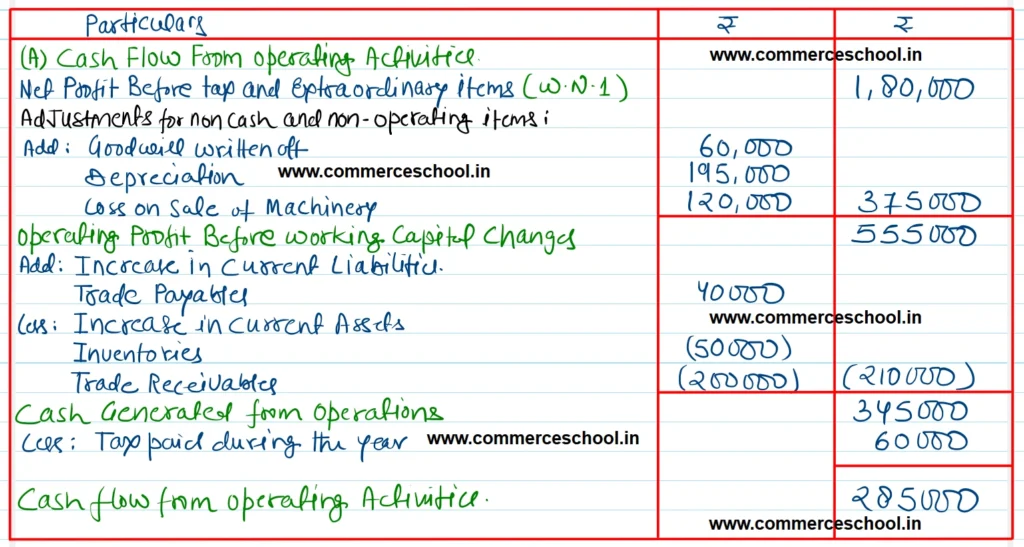 Particulars ₹ ₹
(A) Cash Flow From Operating Activities. www.commerceschool.in
Net Profit Before tax and Extraordinary items (W.N.1) 1,80,000
Adjustments for non cash and non-operating items:
Add: Goodwill written off 60,000
Depreciation www.commerceschool.in 195,000
Loss on Sale of Machinery 120,000 375000
Operating Profit Before Working Capital Changes 555000
Add: Increase in Current Liabilities.
Trade Payables 40000
Less: Increase in Current Assets www.commerceschool.in
Inventories (50000)
Trade Receivables (200000) (210000)
Cash Generated from Operations 345000
Less: Tax paid during the year www.commerceschool.in 60000
Cash flow from Operating Activities. 285000
www.commerceschool.in